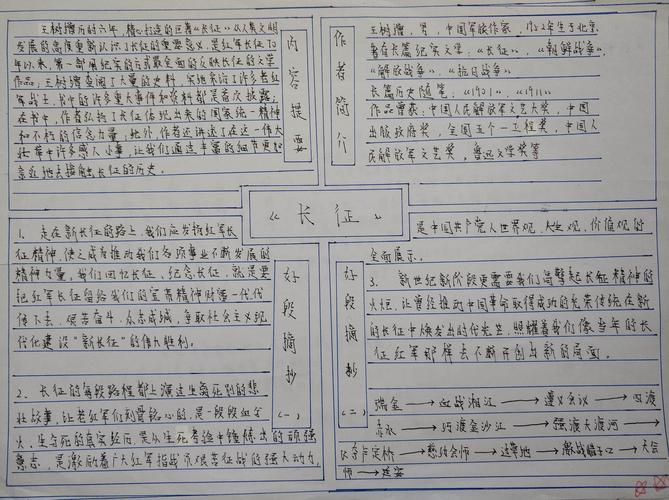 王树增历时六年,精心打造的巨著《长征》从人类文明
发展的高度重新认识了长征的重要意义,是红军长征70
年以来,第一部用纪实的方式最全面的反映长征的文学
作品,王树增查阅了大量的史料,实地采访了许多老红
军战士,书中的许多重大事件和资料都是首次披露,
在书中,作者弘扬了长征体现出来的国家统一精神
和不朽的信念力量,此外,作者还讲述了在这一伟大
壮举中许多感人小事,让我们通过丰富的细节更加
亲近地去接触长征的历史。
内容提要
作者简介
王树增,男,中国军旅作家,1952年生于北京,
著有长篇纪实文学:《长征》、《朝鲜战争》、
《解放战争》、《抗日战争》
长篇历史随笔:《1901》、《1911》
作品曾获:中国人民解放军文艺大奖,中国
出版政府奖,全国五个一工程奖,中国人
民解放军文艺奖,鲁迅文学奖等
《长征》
1、走在新长征的路上,我们应发扬红军长
征精神,使之成为推动我们各项事业不断发展的
精神力量,我们回忆长征,纪念长征,就是要
把红军长征留给我们的宝贵精神财富一代代
传下去,艰苦奋斗,众志成城,争取社会主义现
代化建设"新长征"的伟大胜利。
2、长征的每段路程都上演过生离死别的悲
壮故事,让老红军们刻骨铭心的,是一段段血与
火,生与死的真实经历,是从生死考验中锤炼出的顽强
意志,是激励着广大红军指战员艰苦征战的强大动力,
好段摘抄(一)
好段摘抄(二)
是中国共产党人世界观、人生观、价值观的
全面展示。
3、新世纪新阶段更需要我们高擎起长征精神的
火炬,让曾经推动中国革命取得成功的光荣传统在新
的长征中焕发出时代光芒,照耀着我们像当年的长
征红军那样去不断开创出新的局面。
瑞金→血战湘江→遵义会议→四渡
赤水→巧渡金沙江→强渡大渡河→
飞夺泸定桥→懋功会师→过草地→激战腊子口→大会
师→延安